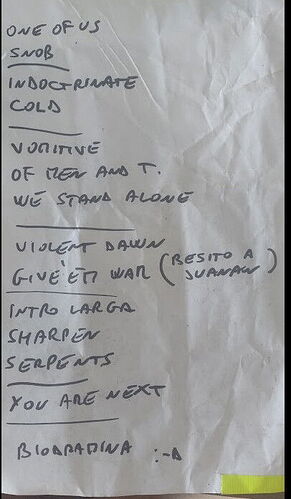 ONE OF US
SNOB
INDOCTRINATE
COLD
VOMITIVE
OF MEN AND T.
WE STAND ALONE
VIOLENT DAWN
GIVE'EM WAR (BESITO A JUANAN)
INTRO LARGA
SHARPEN
SERPENTS
YOU ARE NEXT
BIODRAMINA :-D